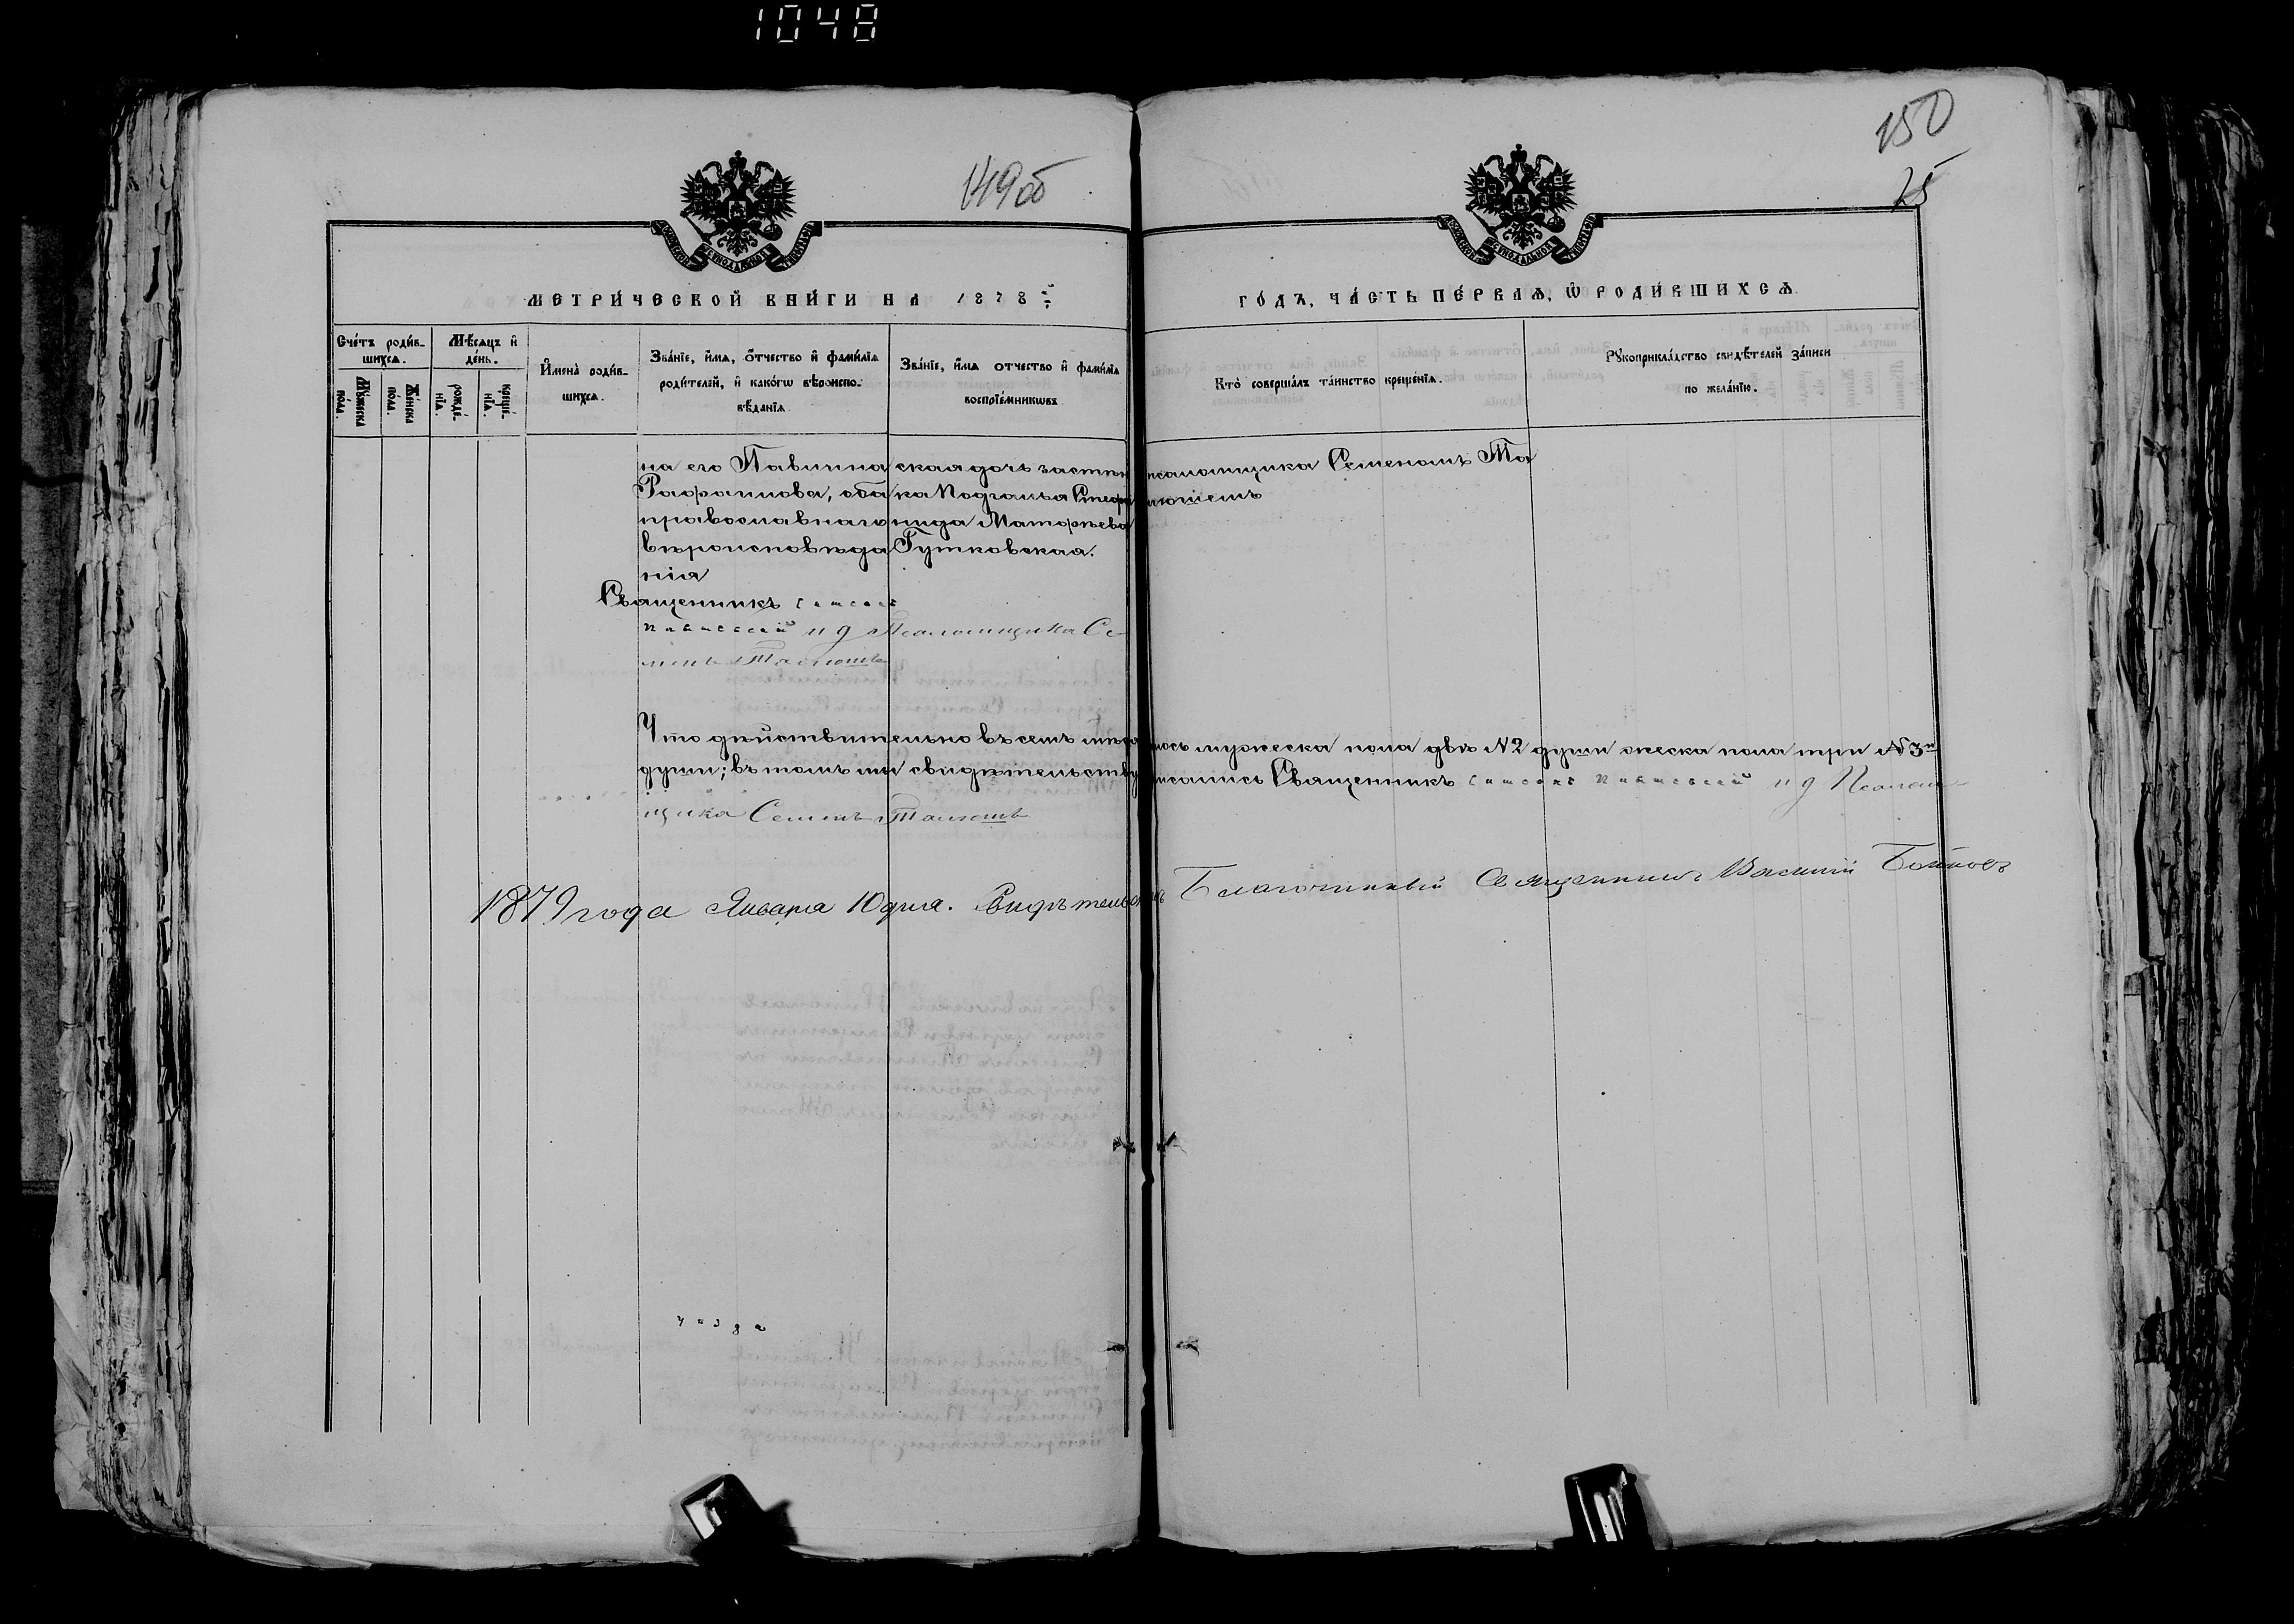 1048
150
149 об
25
МЕТРИ́ЧЕСКОЙ КНИ́ГИ НА 1878й
ГО́ДЪ, ЧА́СТЬ ПЕ́РВАѦ, Ѡ РОДИ́ВШИХСѦ.
Сче́тъ роди́вшихсѧ.
Мѣ́сѧцъ и҆ де́нь.
Мꙋ́жеска по́ла.
Же́нска по́ла.
рожде́нїѧ.
креще́нїѧ.
И҆мена̀ роди́вшихсѧ.
Зва́нїе, и҆́мѧ, о҆́тчество и҆ фами́лїѧ роди́телей, и҆ како́гѡ вѣроисповѣ́данїѧ.
Зва́нїе, и҆́мѧ отчество и҆ фами́лїѧ воспрїе́мникѡвъ
Кто̀ соверша́лъ та́инство креще́нїѧ.
Рꙋкоприкла́дство свидѣ́телей за́писи по жела́нїю.
на его Павинна
Рафаилова, оба
православнаго
вѣроисповѣда
нія
ская дочь застѣн
ка Подгалья Стефа
нида Матфѣева
Гутковская.
псаломщика Семеномъ Та
Священникъ
и д Псаломщика Се-
менъ
Что дѣйствительно въ семъ мѣся
лось мужеска пола двѣ №2 души женска пола три №3и
души; въ томъ мы свидѣтельству
писались Священникъ и д Псалом-
щика Семенъ
1879 года Января 10 дня. Свидѣтельст
Благочинный Священникъ Василій